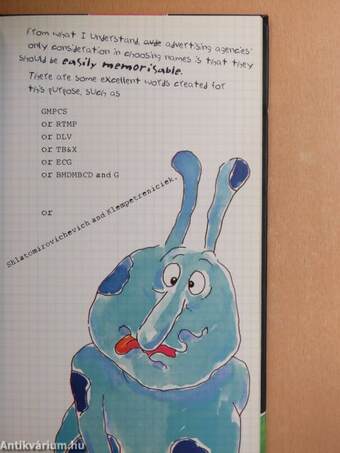 From what I understand, advertising agencies'
only consideration in choosing names is that they
should be easily memorisable.
There are some excellent words created for
this purpose, such as
GMPCS
or RTMP
or DLV
or TB&X
or ECG
or BMDMBCD and G
or
Shlatomirovichevich and Klempetreniciek.
Antikvárium.hu